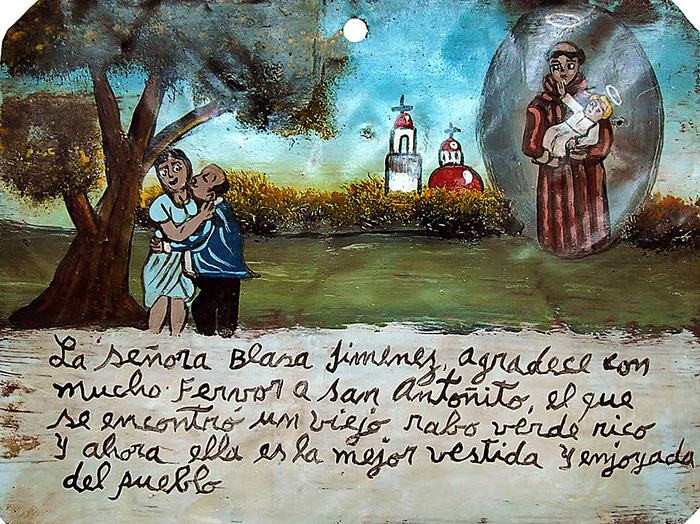 La señora Blasa Jimenez, agradece con
mucho Fervor a San Antoñito, el que
se encontró un viejo rabo verde rico
Y ahora ella es la mejor vestida y enjoyada
del pueblo